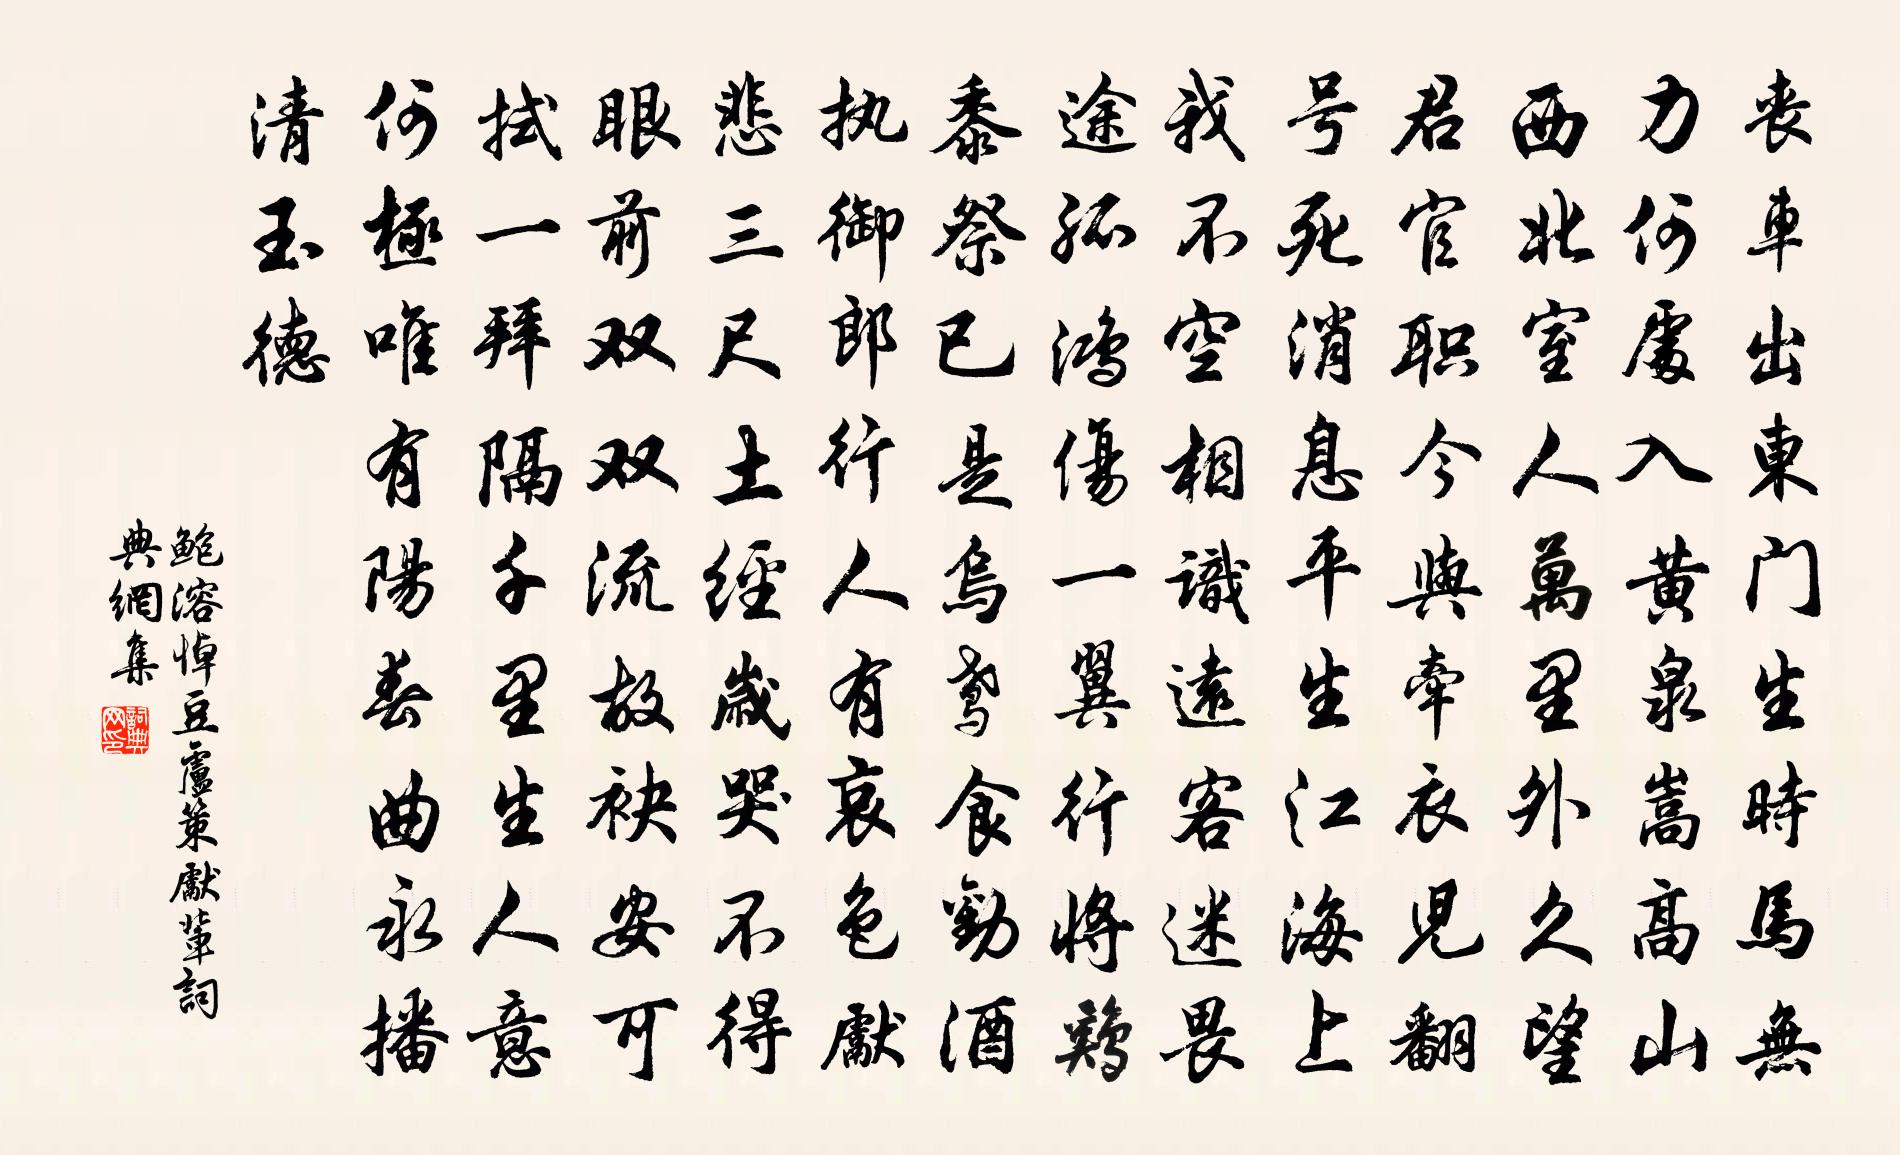 丧車出東门生時馬無
力何處入黄泉嵩高山
西北室人萬里外久望
君官职今與牵衣児翻
号死消息平生江海上
我不空相識遠客迷畏
途孤鸿傷一翼行将鶏
黍祭已是烏鸢食勸酒
执御郎行人有哀色獻
悲三尺土經歲哭不得
眼前双双流故袂安可
拭一拜隔千里生人意
何極唯有陽春曲永播
清玉德
鲍溶悼豆盧策獻輩詞
典網集
詞典网印